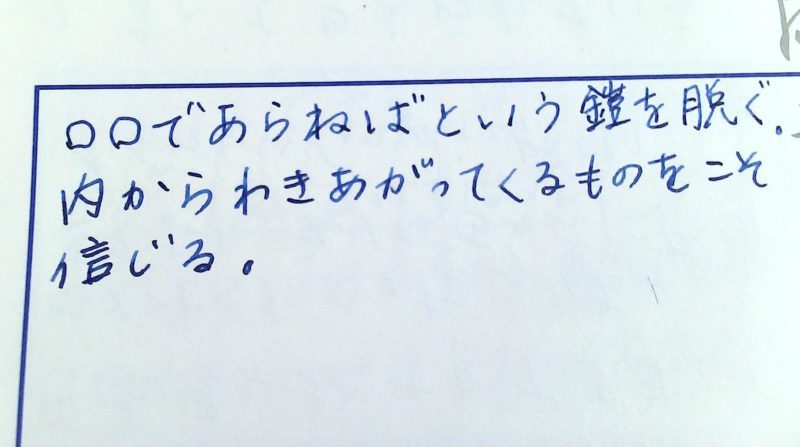 □□であらねばという鎧を脱ぐ。
内からわきあがってくるものをこそ
信じる。